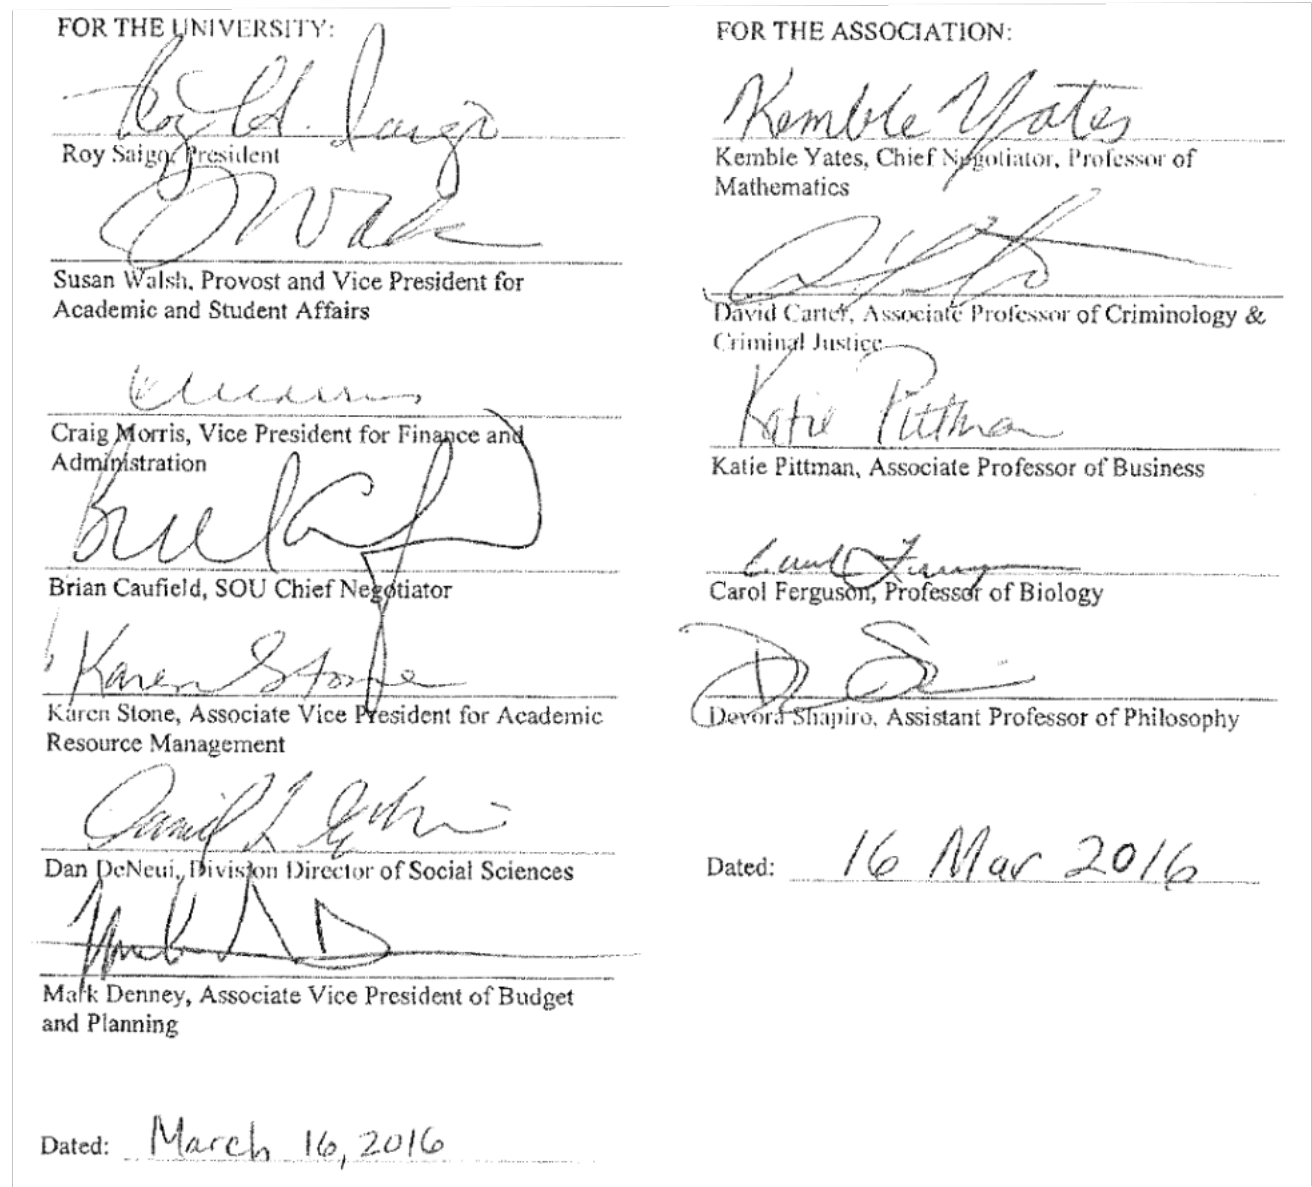 FOR THE UNIVERSITY:
Roy H. Saigo
Roy Saigo, President
Susan Walsh, Provost and Vice President for
Academic and Student Affairs
Craig Morris, Vice President for Finance and
Administration
Brian Caufield, SOU Chief Negotiator
Karen Stone
Karen Stone, Associate Vice President for Academic
Resource Management
Dan DeNeui, Division Director of Social Sciences
Mark Denney, Associate Vice President of Budget
and Planning
Dated: March 16, 2016
FOR THE ASSOCIATION:
Kemble Yates
Kemble Yates, Chief Negotiator, Professor of
Mathematics
David Carter, Associate Professor of Criminology &
Criminal Justice
Katie Pittman
Katie Pittman, Associate Professor of Business
Carol Ferguson, Professor of Biology
Devora Shapiro, Assistant Professor of Philosophy
Dated: 16 Mar 2016